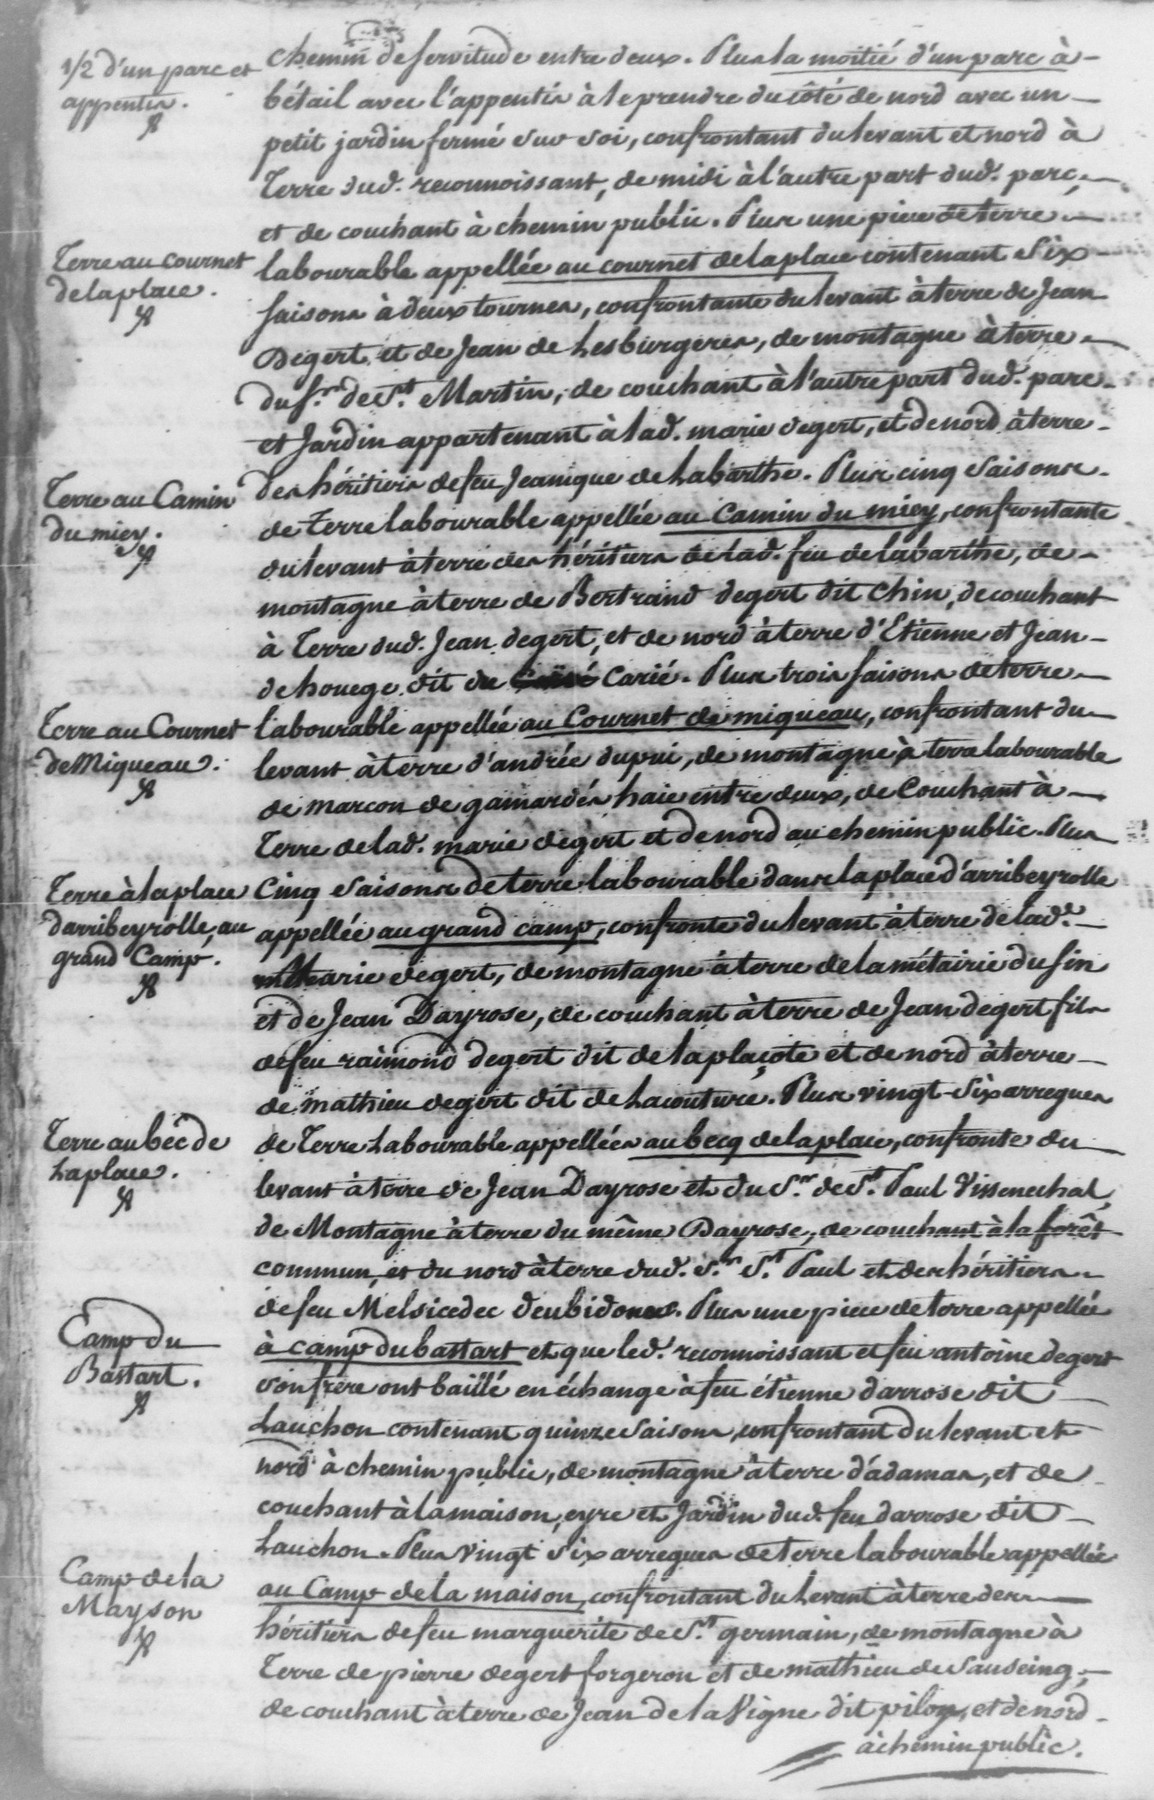 1/2 d'un parc et
appentis.
chemin de servitude entre deux. Plus la moitié d'un parc à
bétail avec l'appentis à le prendre du côté de nord avec un
petit jardin fermé sur soi, confrontant du levant et nord à
Terre dud. reconnoissant, de midi à l'autre part dud. parc,
et de couchant à chemin public. Plus une piece de terre
Terre au Cournet
de laplace.
labourable appellée au cournet de laplace contenant six
saisons à deux tournes, confrontante du levant à terre de Jean
Degert et de Jean de Lesburgeres, de montagne à terre
du Sr. de St. Martin, de couchant à l'autre part dud. parc
et Jardin appartenant à lad. marie degert, et de nord à terre
des héritiers de feu Jeanique de Labarthe. Plus cinq saisons
Terre au Camin
du miey.
de terre labourable appellée au Camin du miey, confrontante
du levant à terre des héritiers de lad. feu de labarthe, de
montagne à terre de Bertrand degert dit Chin, de couchant
à Terre dud. Jean degert, et de nord à terre d'Etienne et Jean
de houege dit de Carié. Plus trois saisons de terre
Terre au Cournet
de Miqueau.
labourable appellée au Cournet de miqueau, confrontant du
levant à terre d'andrée dupui, de montagne à terre labourable
de marcon de gamardés haie entre deux, de Couchant à
Terre de lad. marie degert et de nord au chemin public. Plus
Terre à la place
d'arribeyrolle, au
grand Camp.
Cinq saisons de terre labourable dans la place d'arribeyrolle
appellée au grand camp, confronte du levant à terre de lad.e
marie degert, de montagne à terre de la métairie du sin
et de Jean Dayrose, de couchant à terre de Jean degert fils
de feu raimond degert dit de laplaçote et de nord à terre
de mathieu degert dit de Lacouture. Plus vingt-six arregues
Terre au béc de
Laplace.
de Terre Labourable appellées au becq de laplace, confronte du
levant à terre de Jean Dayrose et du Sr. de St. Paul Vissenechal,
de Montagne à terre du même Dayrose, de couchant à la forêt
commun, et du nord à terre dud. Sr. St. Paul et des héritiers
de feu Melsicedec deubidones. Plus une piece de terre appellée
Camp du
Bastart.
à Camp du bastart et que led. reconnoissant et feu antoine degert
son frère ont baillé en échange à feu étienne darrose dit
Lauchon contenant quinze saisons, confrontant du levant et
nord à chemin public, de montagne à terre d'adamas, et de
couchant à la maison, eyre et Jardin dud. feu darrose dit
Lauchon. Plus vingt six arregues de terre labourable appellée
Camp de la
Mayson
au Camp de la maison, confrontant du Levant à terre des
héritiers de feu marguerite de St. germain, de montagne à
Terre de pierre degert forgeron et de mathieu de Sauseing,
de couchant à terre de Jean de la Vigne dit piloy, et de nord
à chemin public.